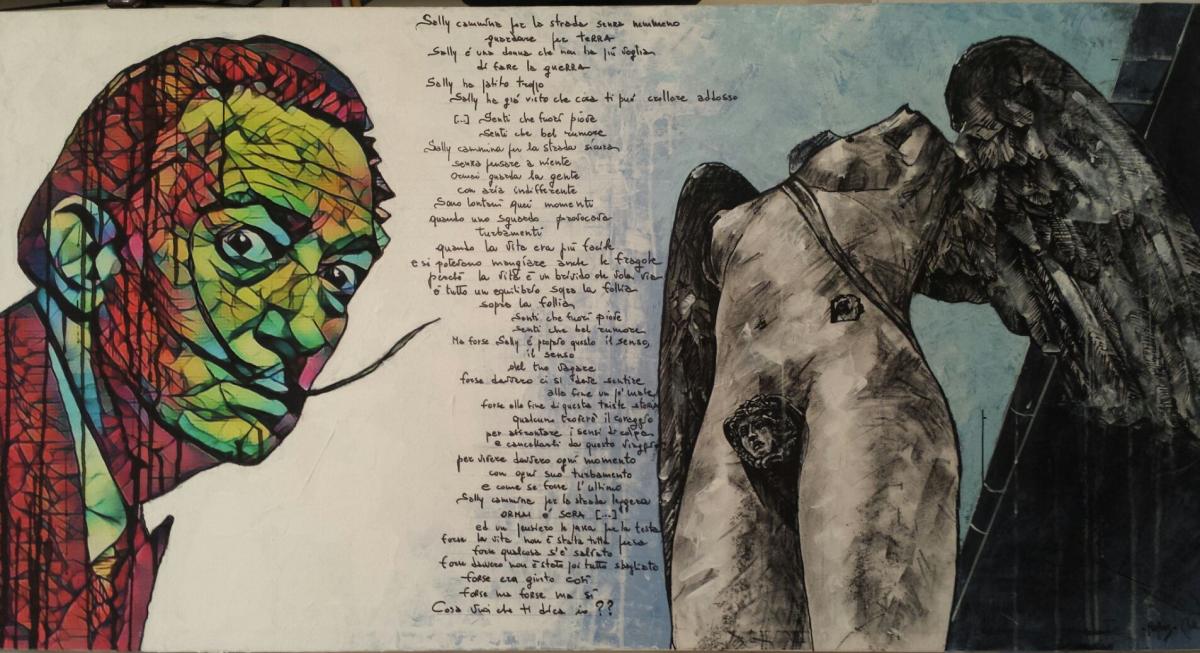 Sally cammina per la strada senza nemmeno
guardare per TERRA
Sally è una donna che non ha più voglia
di fare la guerra
Sally ha patito troppo
Sally ha già visto che cosa ti può crollare addosso
[..] Senti che fuori piove
senti che bel rumore
Sally cammina per la strada sicura
senza pensare a niente
ormai guarda la gente
con aria indifferente
Sono lontani quei momenti
quando uno sguardo provocava
turbamenti
quando la vita era più facile
e si potevano mangiare anche le fragole
perché la vita è un brivido che vola via
è tutto un equilibrio sopra la follia
sopra la follia
senti che fuori piove
senti che bel rumore
Ma forse Sally è proprio questo il senso,
il senso
del tuo vagare
forse davvero ci si deve sentire
alla fine un po' male
forse alla fine di questa triste storia
qualcuno troverà il coraggio
per affrontare i sensi di colpa
e cancellarli da questo viaggio
per vivere davvero ogni momento
con ogni suo turbamento
e come se fosse l'ultimo
Sally cammina per la strada leggera
ORMAI è SERA [...]
ed un pensiero le passa per la testa
forse la vita non è stata tutta persa
forse qualcosa s'è salvato
forse davvero non è stato poi tutto sbagliato
forse era giusto così
forse ma forse ma sì
Cosa vuoi che ti dica io ??